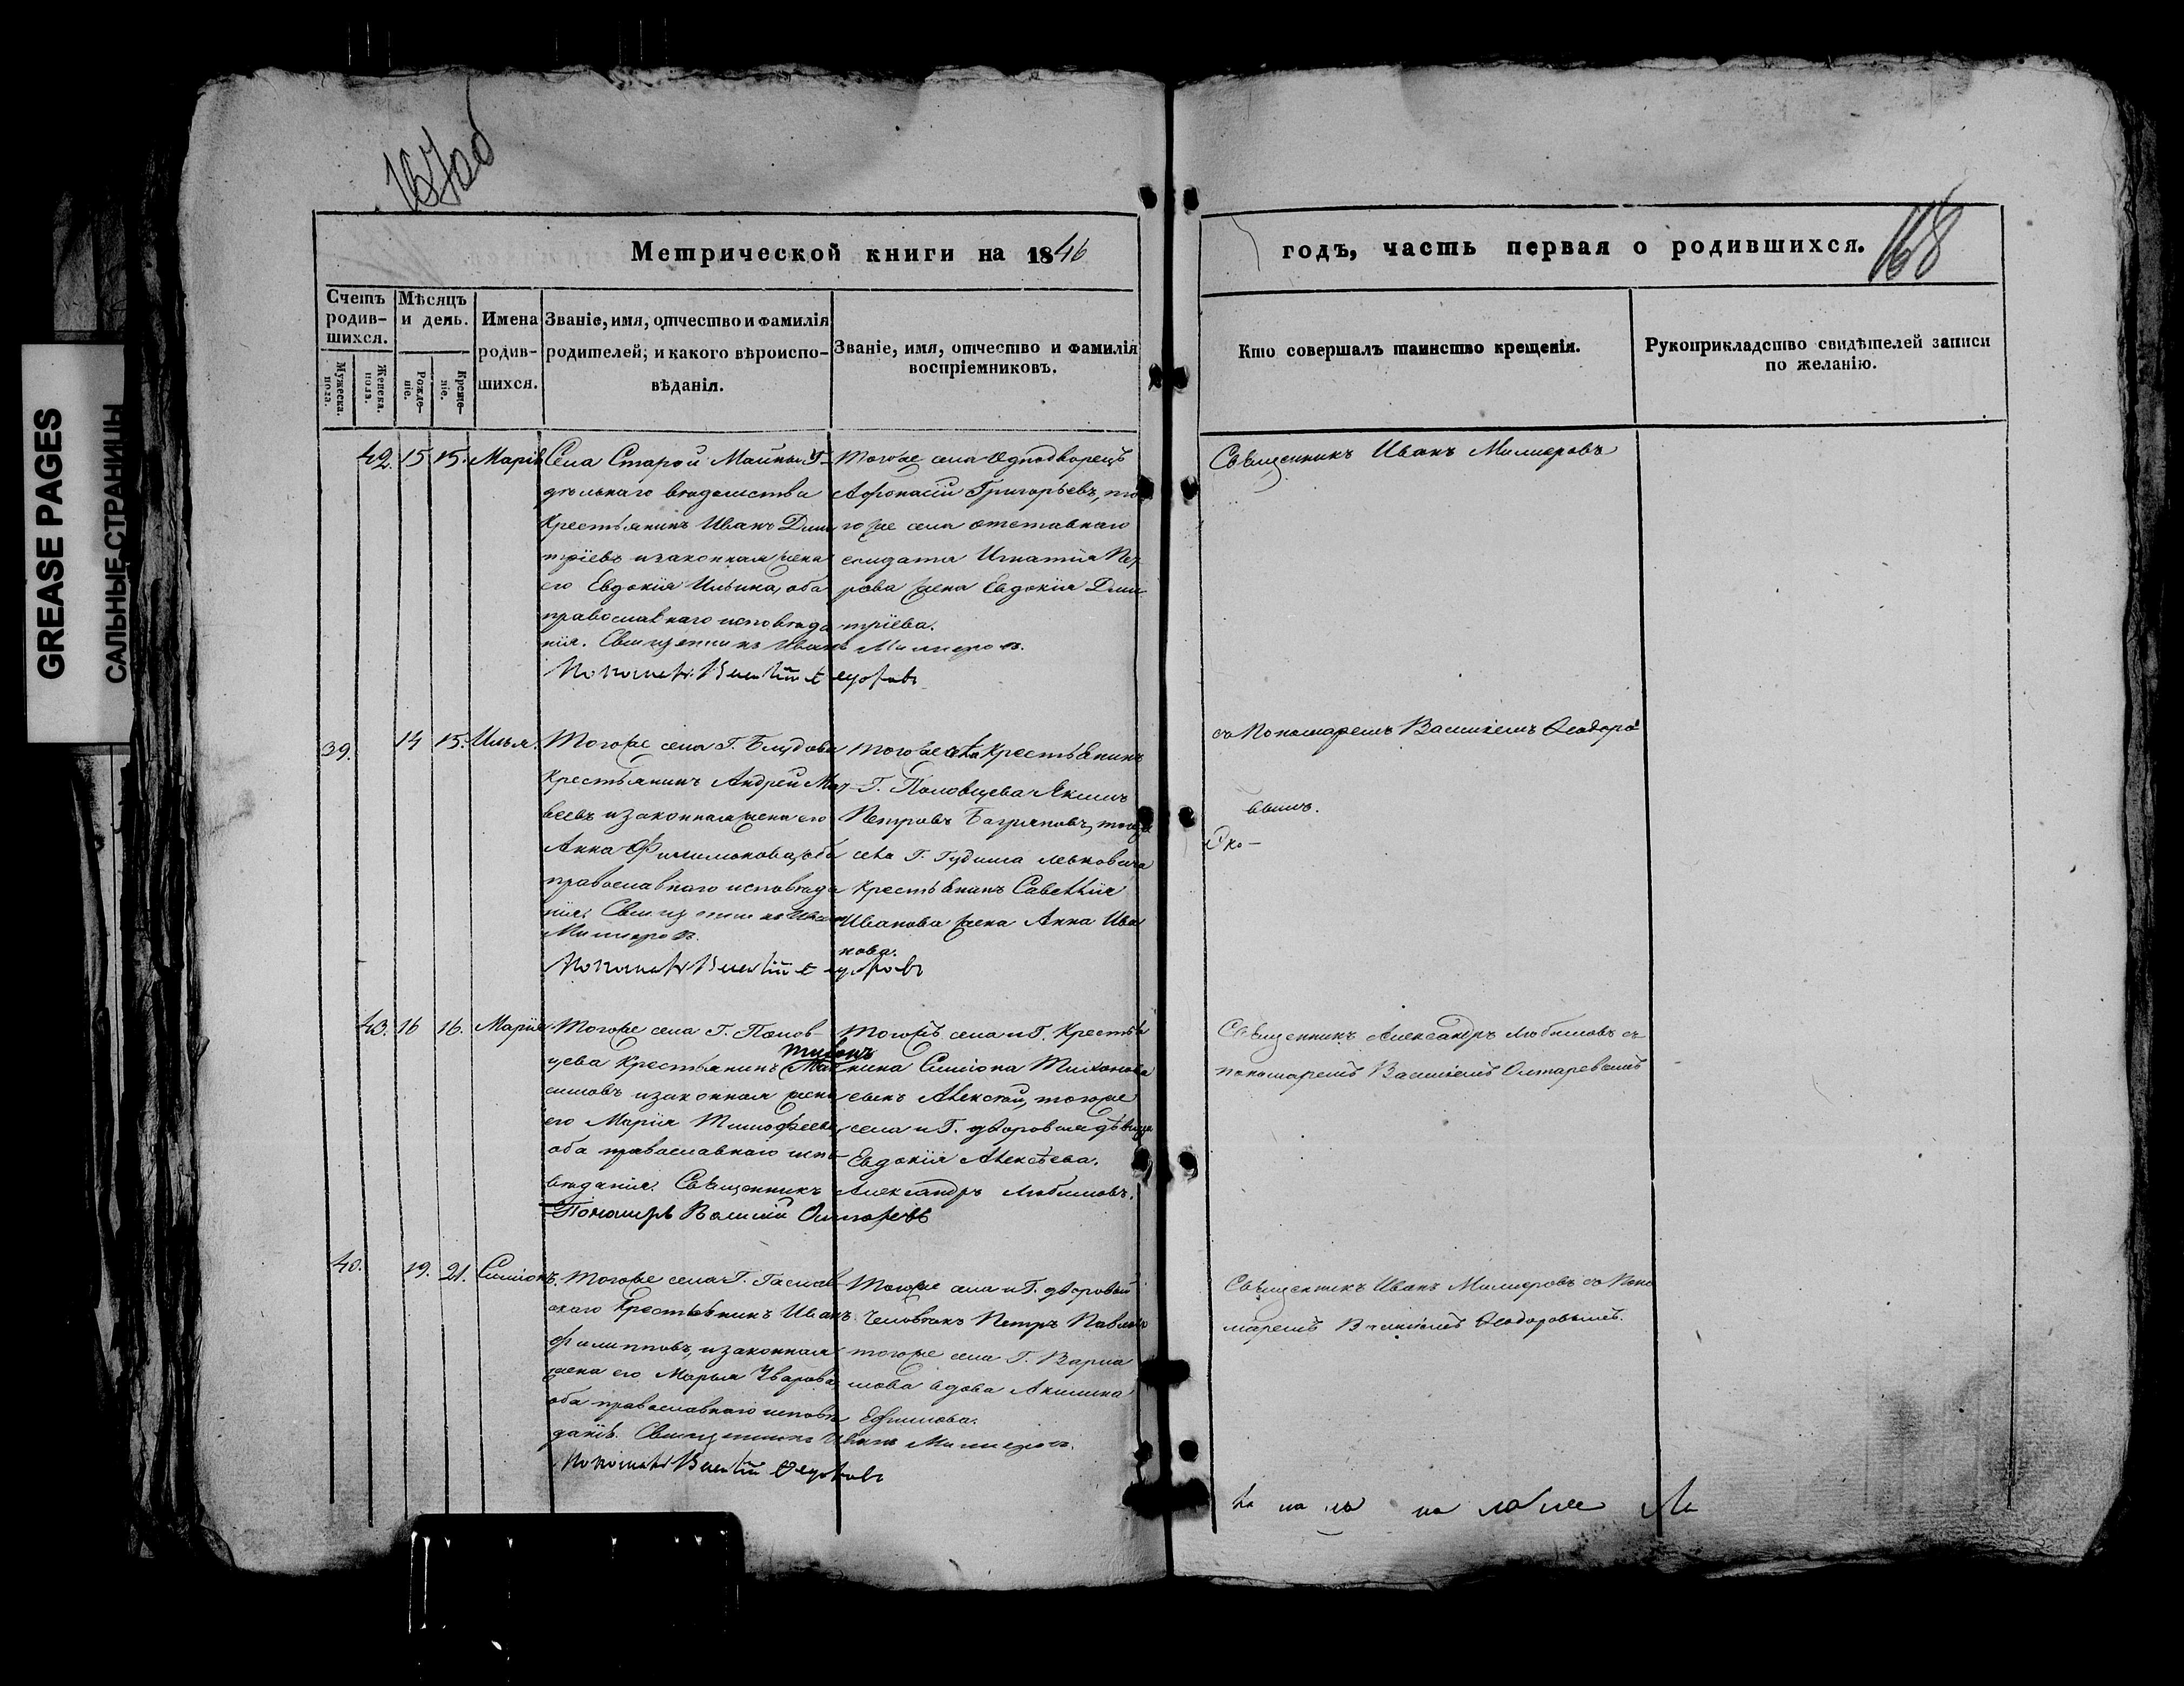 GREASE PAGES
САЛЬНЫЕ СТРАНИЦЫ
167об
168
Метрической книги на 1846
годъ, часть первая о родившихся.
Счетъ родив-шихся.
Мужеска. пола.
Женска. пола.
Мѣсяцъ и день.
Рожде-ніе.
Креще-ніе.
Имена родив-шихся.
Званіе, имя, отчество и фамилія
родителей, и какого вѣроиспо-
вѣданія.
Званіе, имя, отчество и фамилія
воспріемниковъ.
Кто совершалъ таинство крещенія.
Рукоприкладство свидѣтелей записи
по желанію.
42. 15 15. Марія
Села Старой Майны
дѣльнаго вѣдомства
Крестьянинъ Иванъ Дми
тріевъ и законная жена
его Евдокія Ильина, оба
православнаго исповѣда
нія. Священникъ Иванъ Милперовъ.
Пономарь Василій Ѳедоровъ
Тогоже села Однодворецъ
Афонасій Григорьевъ, то
гоже села отставнаго
солдата Игнатія Пет
рова жена Евдокія Дми
тріева.
Священникъ Иванъ Милперовъ
39. 14 15. Илья.
Тогоже села Г. Блудова
Крестьянинъ Андрей Мат
веевъ и законная жена его
Анна Филимонова, оба
православнаго исповѣда
нія. Священникъ Иванъ
Милперовъ.
Пономарь Василій Ѳедоровъ
Тогоже села Крестьянинъ
Г. Половцева Якимъ
Петровъ тогоже
села Г.
Крестьянинъ
Иванова жена Анна Ива
нова.
съ Пономаремъ Василіемъ Ѳеодоро
вымъ.
43. 16 16. Марія
Тогоже села Г. Полов
цева Крестьянинъ
симовъ и законная жена
его Марія Тимофеева,
оба православнаго испо
вѣданія. Священникъ Александръ Любимовъ.
Пономарь Василій Олтаревъ
Тогожъ села и Г. Крестья
нина Симіона Тихонова
сынъ Алексѣй, тогоже
села и Г. дворовая дѣвица
Евдокія Алексѣева.
Священникъ Александръ Любимовъ съ
пономаремъ Василіемъ Олтаревымъ
40. 19. 21. Симіонъ.
Тогоже села Г.
скаго Крестьянинъ Иванъ
Филипповъ, и законная
жена его Марья Уварова
оба православнаго исповѣ
данія. Священникъ Иванъ Милперовъ.
Пономарь Василій Ѳедоровъ
Тогоже села и Г. дворовый
человѣкъ Петръ Павловъ
тогоже села Г. Варла
мова вдова Акилина
Ефимова.
Священникъ Иванъ Милперовъ съ Поно
маремъ Василіемъ Ѳеодоровымъ.